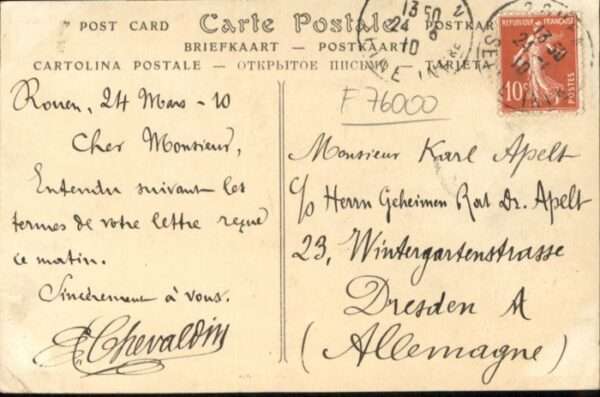 POST CARD Carte Postale POSTKAR
BRIEFKAART – POSTKAART
CARTOLINA POSTALE – ОТКРЫТОЕ ПИСЬМО – TARJETA
Rouen, 24 Mars - 10
Cher Monsieur,
Entendu suivant les
termes de votre lettre reçue
ce matin.
Sincèrement à vous.
Chevaldin
F 76000
Monsieur Karl Apelt
c/o Herrn Geheimen Rat Dr. Apelt
23, Wintergartenstrasse
Dresden A
(Allemagne)
REPUBLIQUE FRANÇAISE
10c
POSTES
13 50
24
10
13 50
10